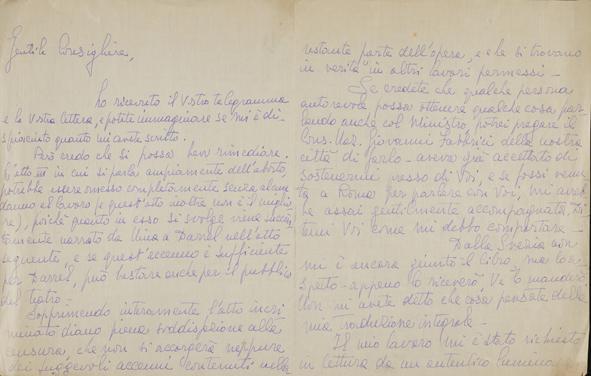 Gentile Consigliere,
ho ricevuto il Vstro telegramma
e la Vstra lettera, e potete immaginare se mi è di-
spiaciuto quanto mi avete scritto.
Però credo che si possa ben rimediare.
L'atto III in cui si parla ampiamente dell'aborto,
potrebbe essere omesso completamente senza alcun
danno al lavoro (e quest'atto inoltre non è il miglio
re), poichè quanto in esso si svolge viene succin
tamente narrato da Nina a Darrel nell'atto
seguente, e se quest'accenno è sufficiente
per Darrel, può bastare anche per il pubblico
del teatro.
Sopprimendo interamente l'atto incri
minato diamo piena soddisfazione alla
censura, che non si accorgerà neppure
dei fuggevoli accenni contenuti nella
restante parte dell'opera, e che si trovano
in verità in altri lavori permessi -
Se credete che qualche persona
autorevole possa ottenere qualche cosa par
lando anche col Ministro, potrei pregare il
Cons. Naz. Giovanni Fabbrici della nostra
città di
aveva già accettato di
sostenermi presso di Voi, e se fossi venu
ta a Roma per parlare con Voi, mi avreb
be assai gentilmente accompagnata. Di
temi Voi come mi debbo comportare -
Dalla Svezia non
mi è ancora giunto il libro, ma lo a
spetto - appena lo riceverò, Ve lo manderò
Non mi avete detto che cosa pensate della
mia traduzione integrale -
Il mio lavoro mi è stato richiesto
in lettura da un autentico